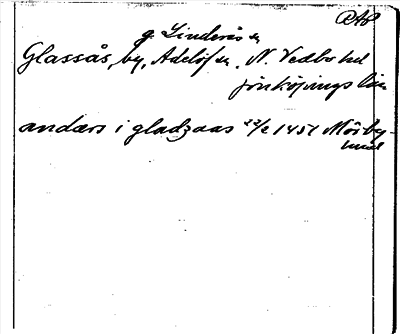 RAP
g. Linderås sn
Glassås, by, Adelöf sn. N. Vedbo hd
Jönköpings län
andærs i gladzaas 22/2 1451 Mörby-